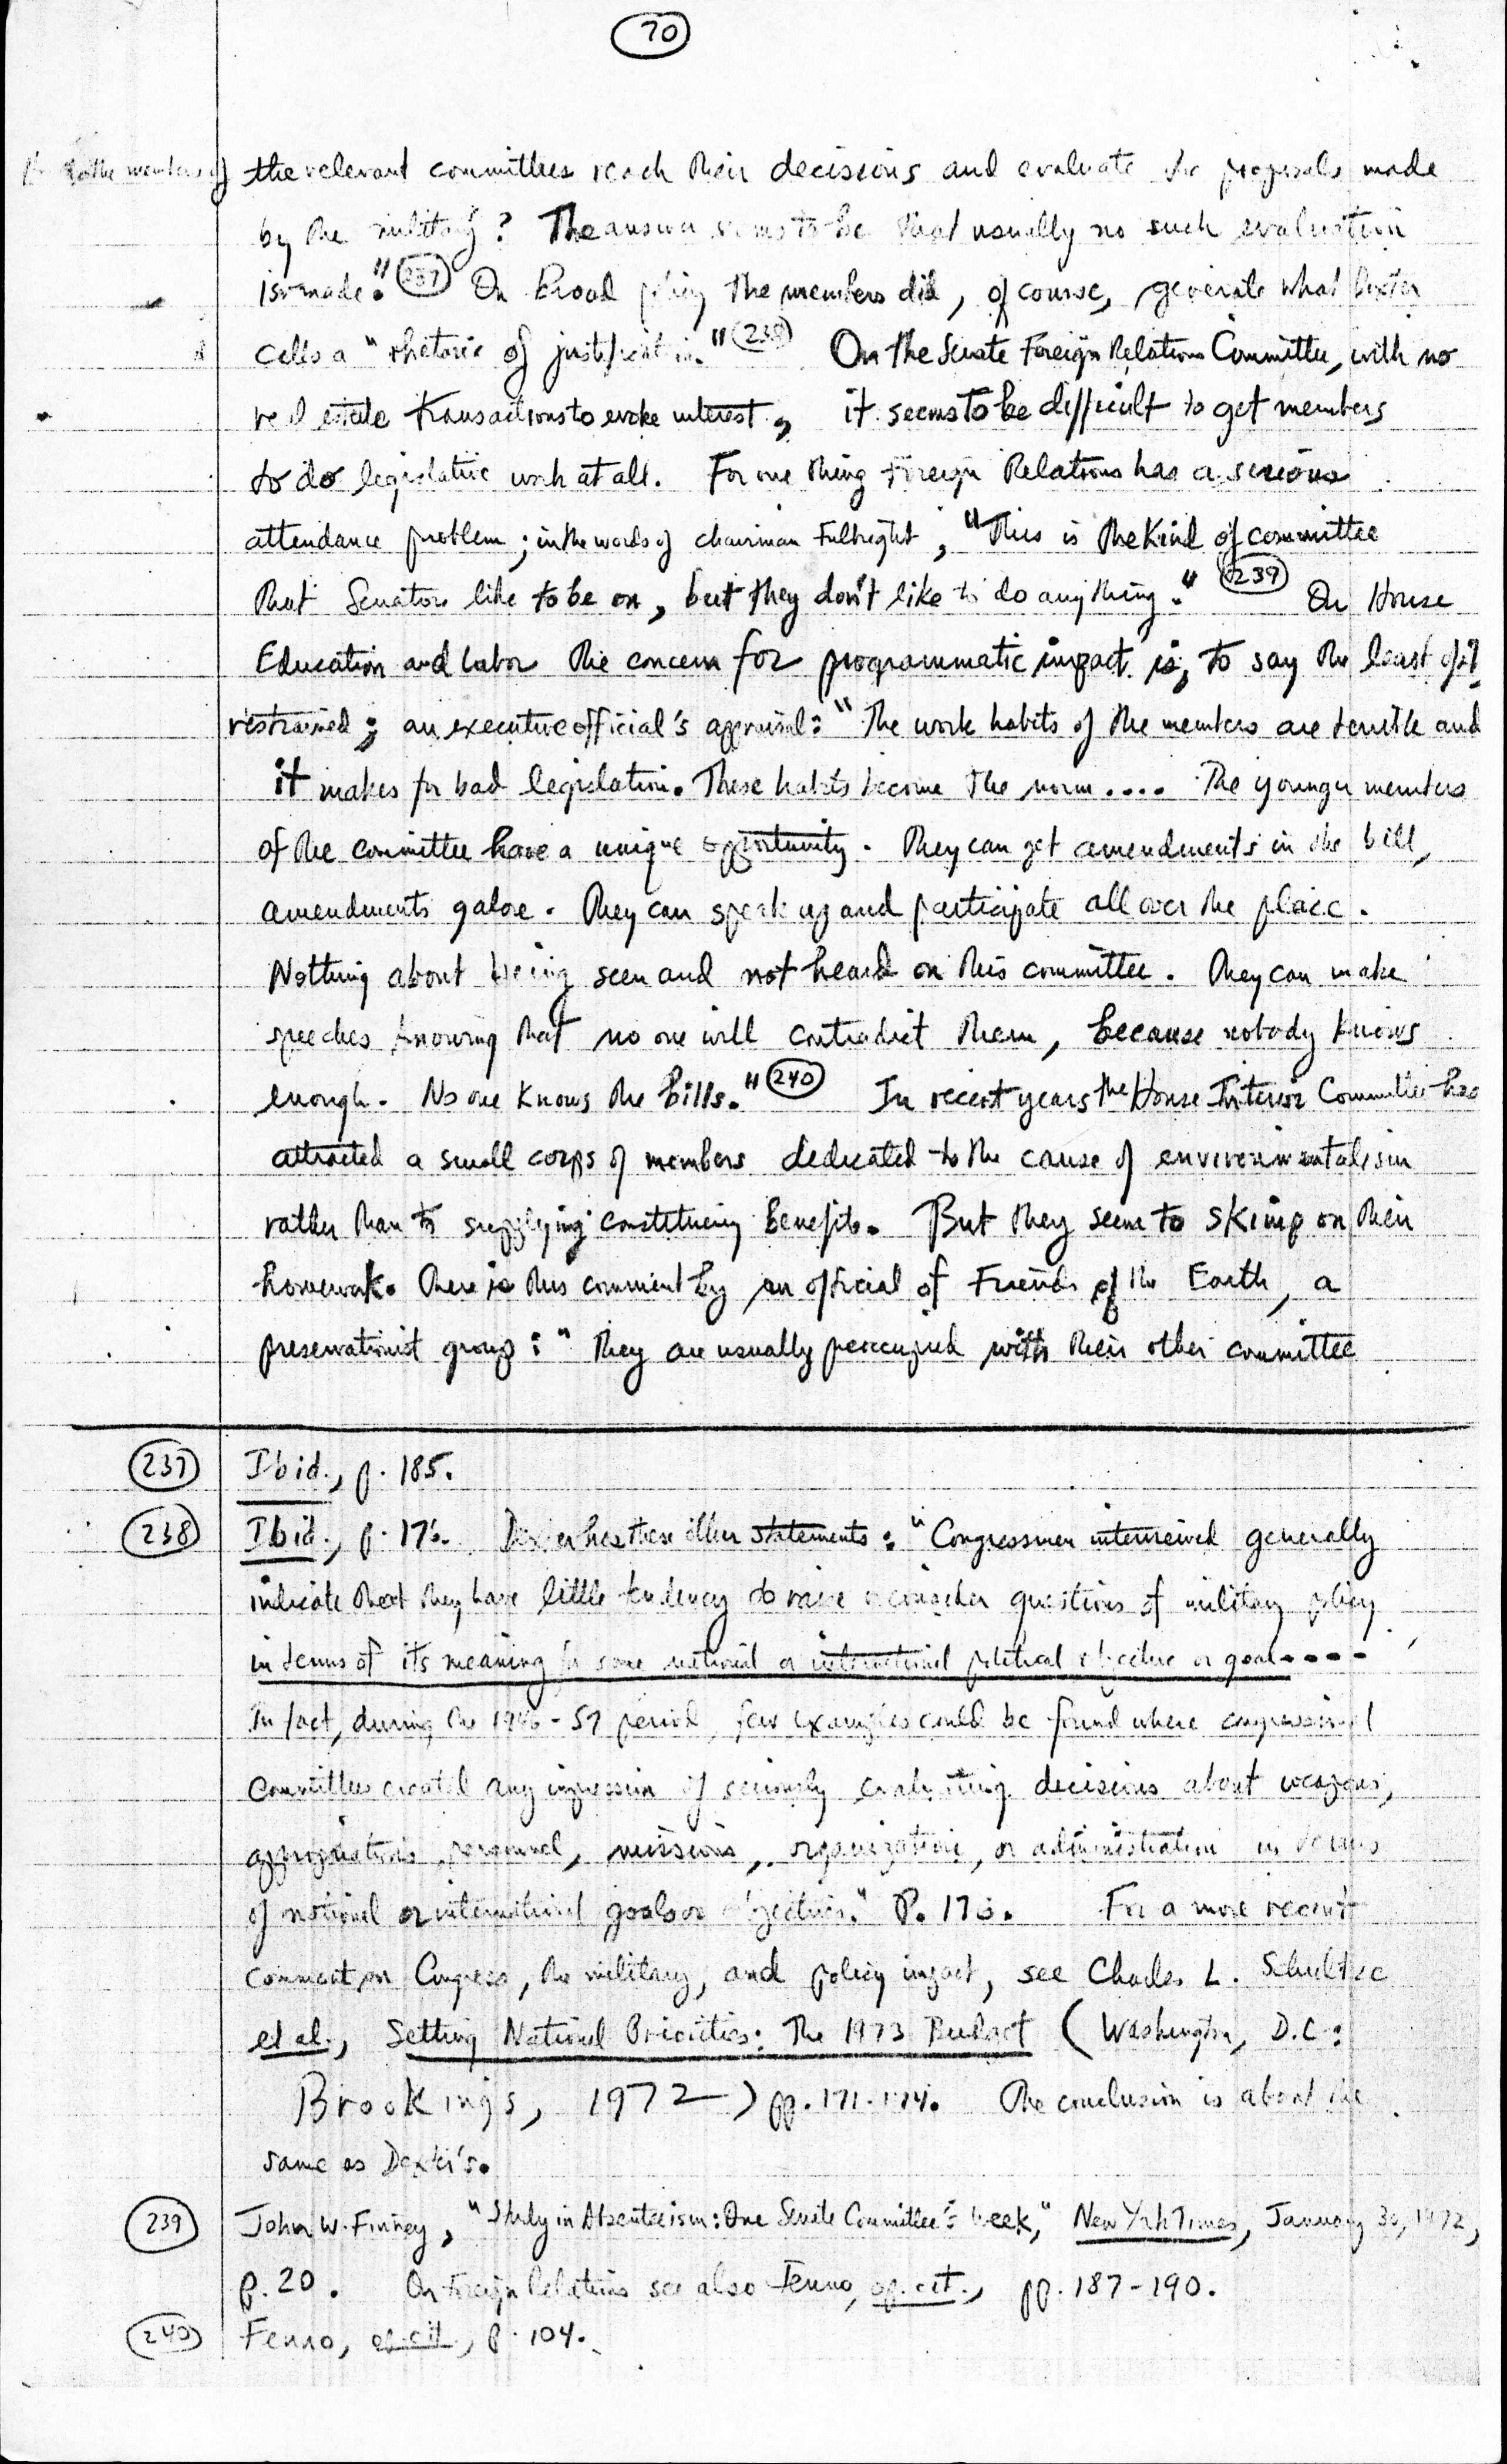 70
to the members of the relevant committees reach their decisions and evaluate the proposals made
by the military? The answer seems to be that usually no such evaluation
is made." 237 On broad policy the members did, of course, generate what Dexter
calls a "rhetoric of justification." 238 On the Senate Foreign Relations Committee, with no
real estate transactions to evoke interest, it seems to be difficult to get members
to do legislative work at all. For one thing Foreign Relations has a serious
attendance problem; in the words of chairman Fulbright, "This is the kind of committee
that Senators like to be on, but they don't like to do anything." 239 On House
Education and Labor the concern for programmatic impact is, to say the least of it
restrained; an executive official's appraisal: "The work habits of the members are terrible and
it makes for bad legislation. These habits become the norm.... The younger members
of the committee have a unique opportunity. They can get amendments in the bill,
amendments galore. They can speak up and participate all over the place.
Nothing about being seen and not heard on this committee. They can make
speeches knowing that no one will contradict them, because nobody knows
enough. No one knows the bills." 240 In recent years the House Interior Committee has
attracted a small corps of members dedicated to the cause of environmentalism
rather than to supplying constituency benefits. But they seem to skimp on their
homework. There is this comment by an official of Friends of the Earth, a
preservationist group: "They are usually preoccupied with their other committee
237 Ibid., p. 185.
238 Ibid., p. Dexter has these other statements: "Congressmen interviewed generally
indicate that they have little tendency to raise or consider questions of military policy
in terms of its meaning for some national or international political objective or goal....
In fact, during the 1946-57 period, few examples could be found where congressional
committees created any impression of seriously evaluating decisions about weapons,
appropriations, personnel, missions, organization, or administration in terms
of national or international goals or objectives." P. For a more recent
comment on Congress, the military, and policy impact, see Charles L. Schultze
et al., Setting National Priorities: The 1973 Budget (Washington, D.C.:
Brookings, 1972) pp. 171-174. The conclusion is about the
same as Dexter's.
239 John W. Finney, "Study in Absenteeism: One Senate Committee's Week," New York Times, January 30, 1972,
p. 20. On Foreign Relations see also Fenno, op. cit., pp. 187-190.
240 Fenno, op. cit., p. 104.